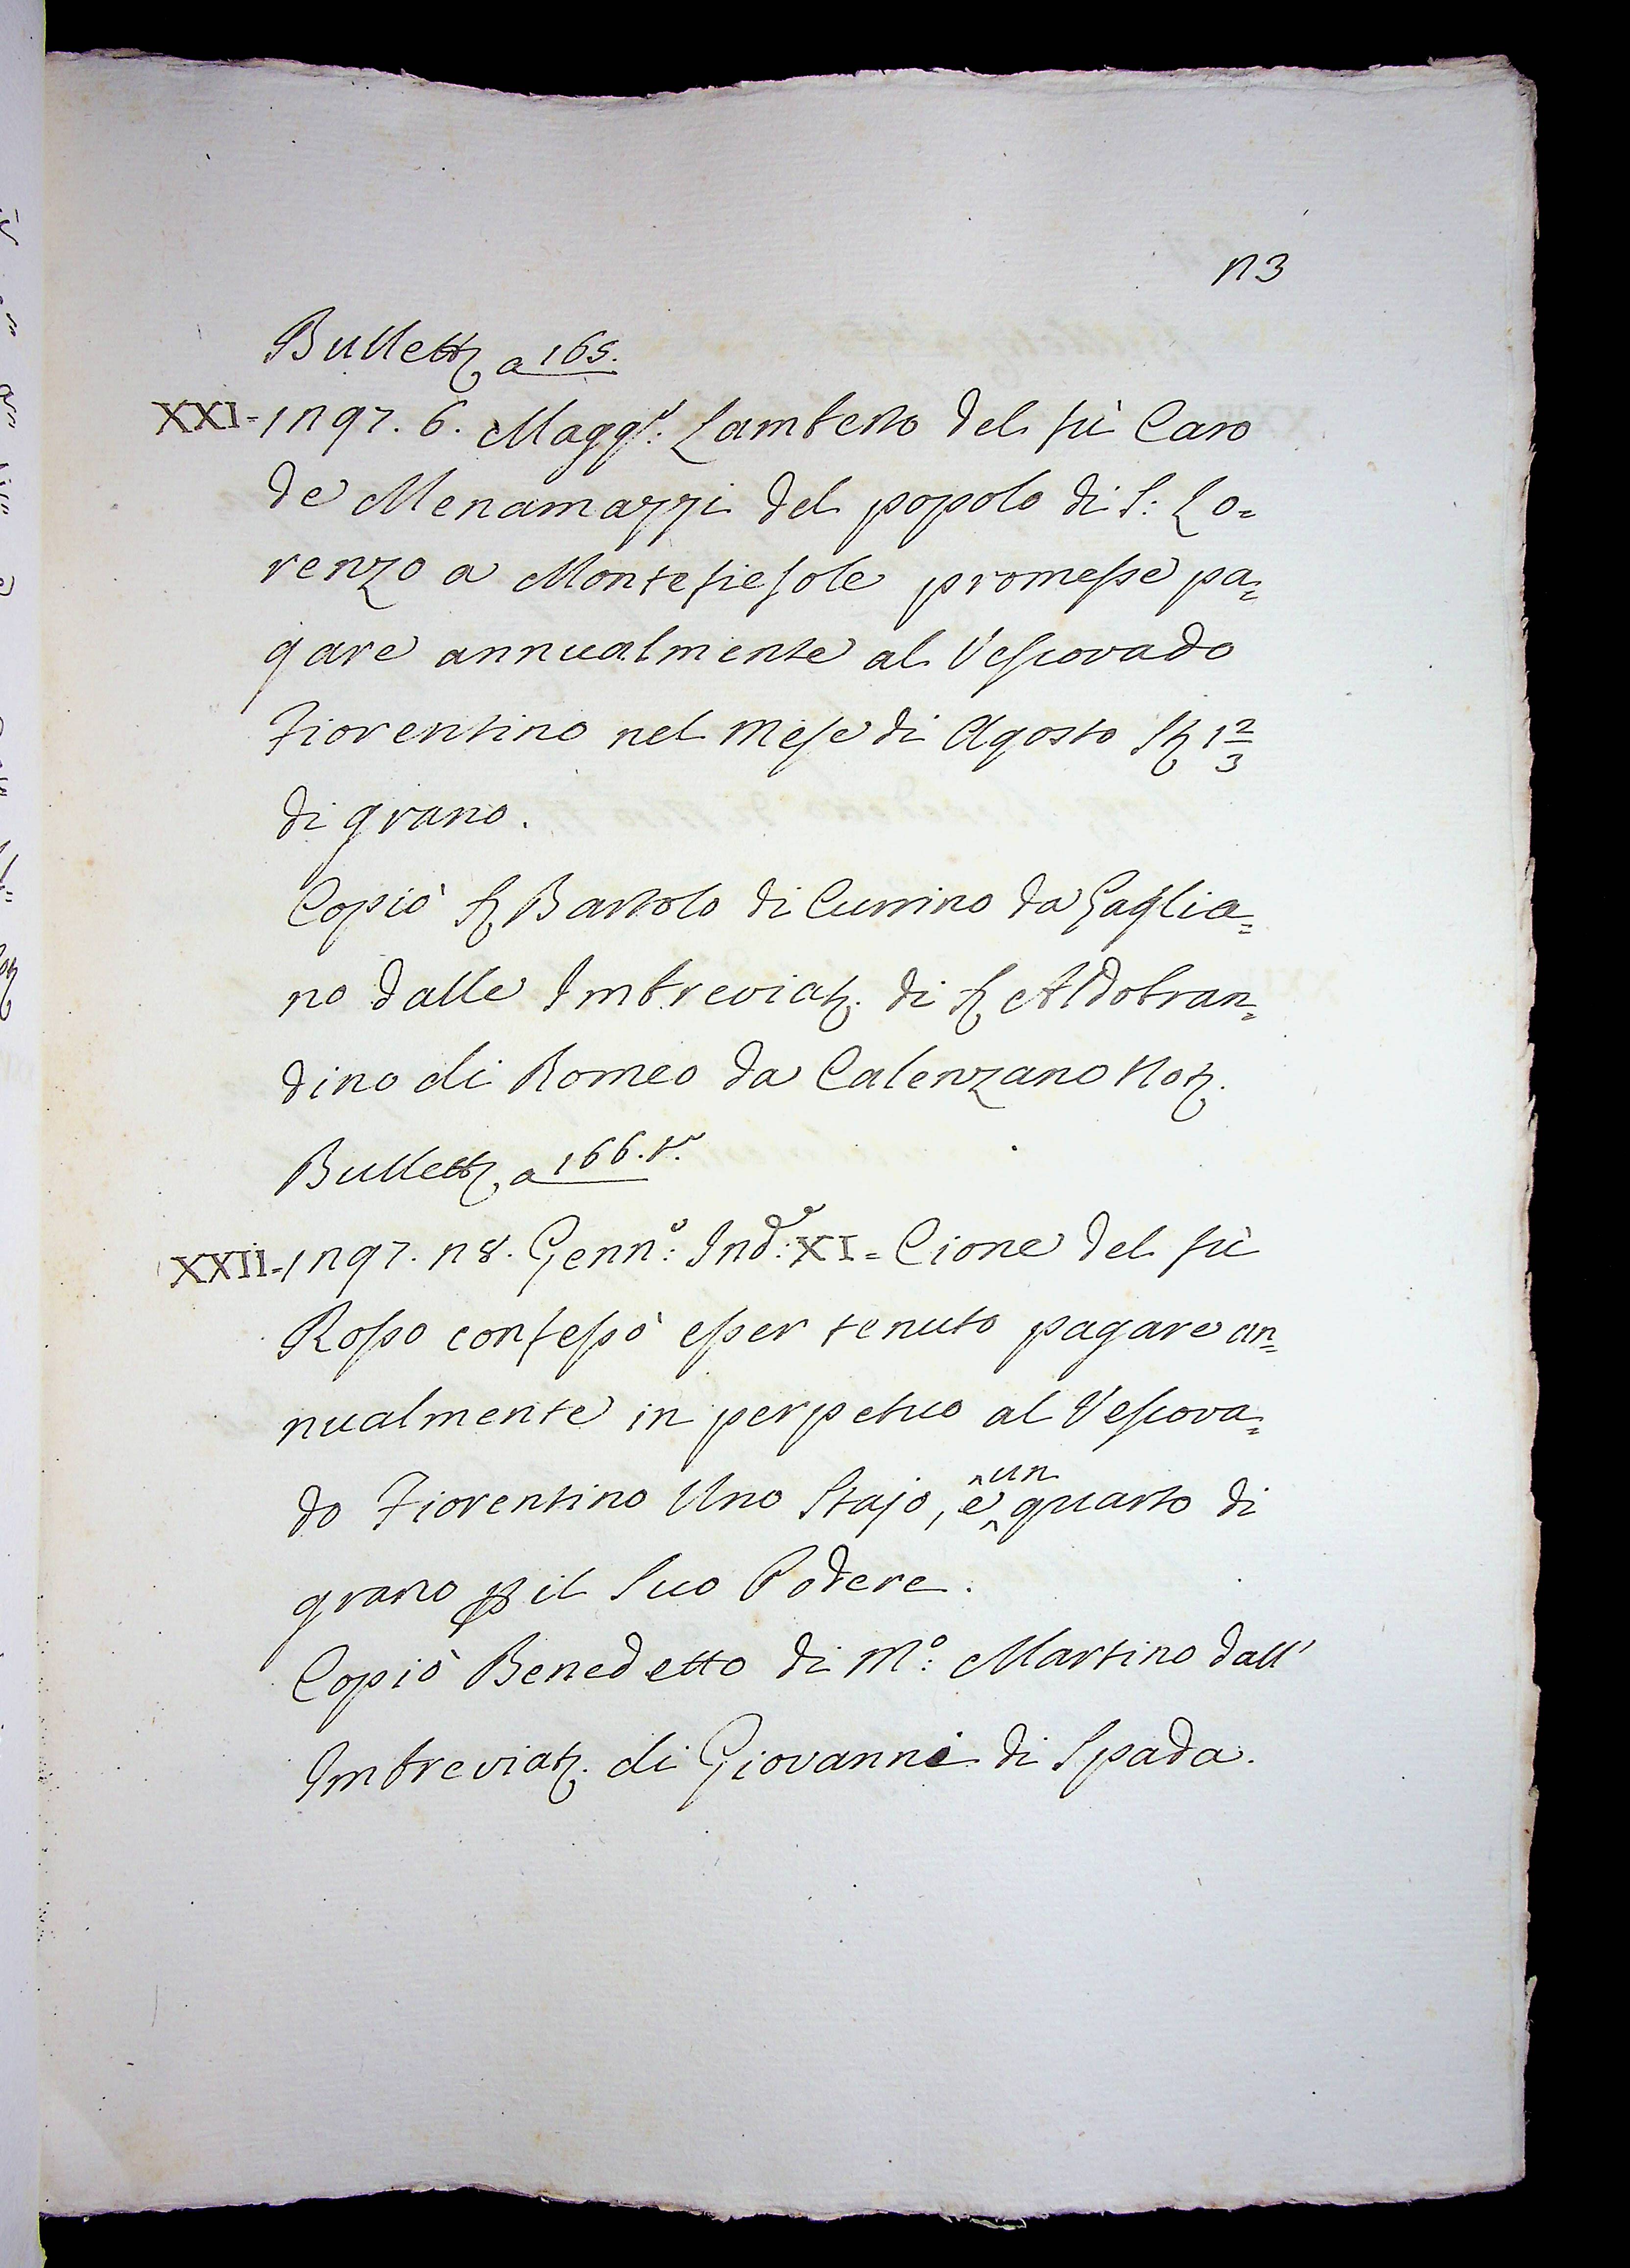 23
Bullett. a 165.
XXI=1297. 6. Magg.º: Lamberto del fù Caro
de Menamazzi del popolo di S: Lo=
renzo a Montefiesole promesse pa=
gare annualmente al Vescovado
Fiorentino nel Mese di Agosto St. 1 2/3
di grano.
Copiò S. Bartolo di Currino da Gaglia=
no dalle Imbreviat. di S. Aldobran=
dino di Romeo da Calenzano Not.
Bullett. a 166.tº.
XXII=1297. 28. Genn.º: Ind.e: XI= Cione del fù
Rosso confessò esser tenuto pagare an=
nualmente in perpetuo al Vescova=
do Fiorentino Uno Stajo, e un quarto di
grano p il Suo Podere.
Copiò Benedetto di Mº: Martino dall'
Imbreviat. di Giovanni di Spada.